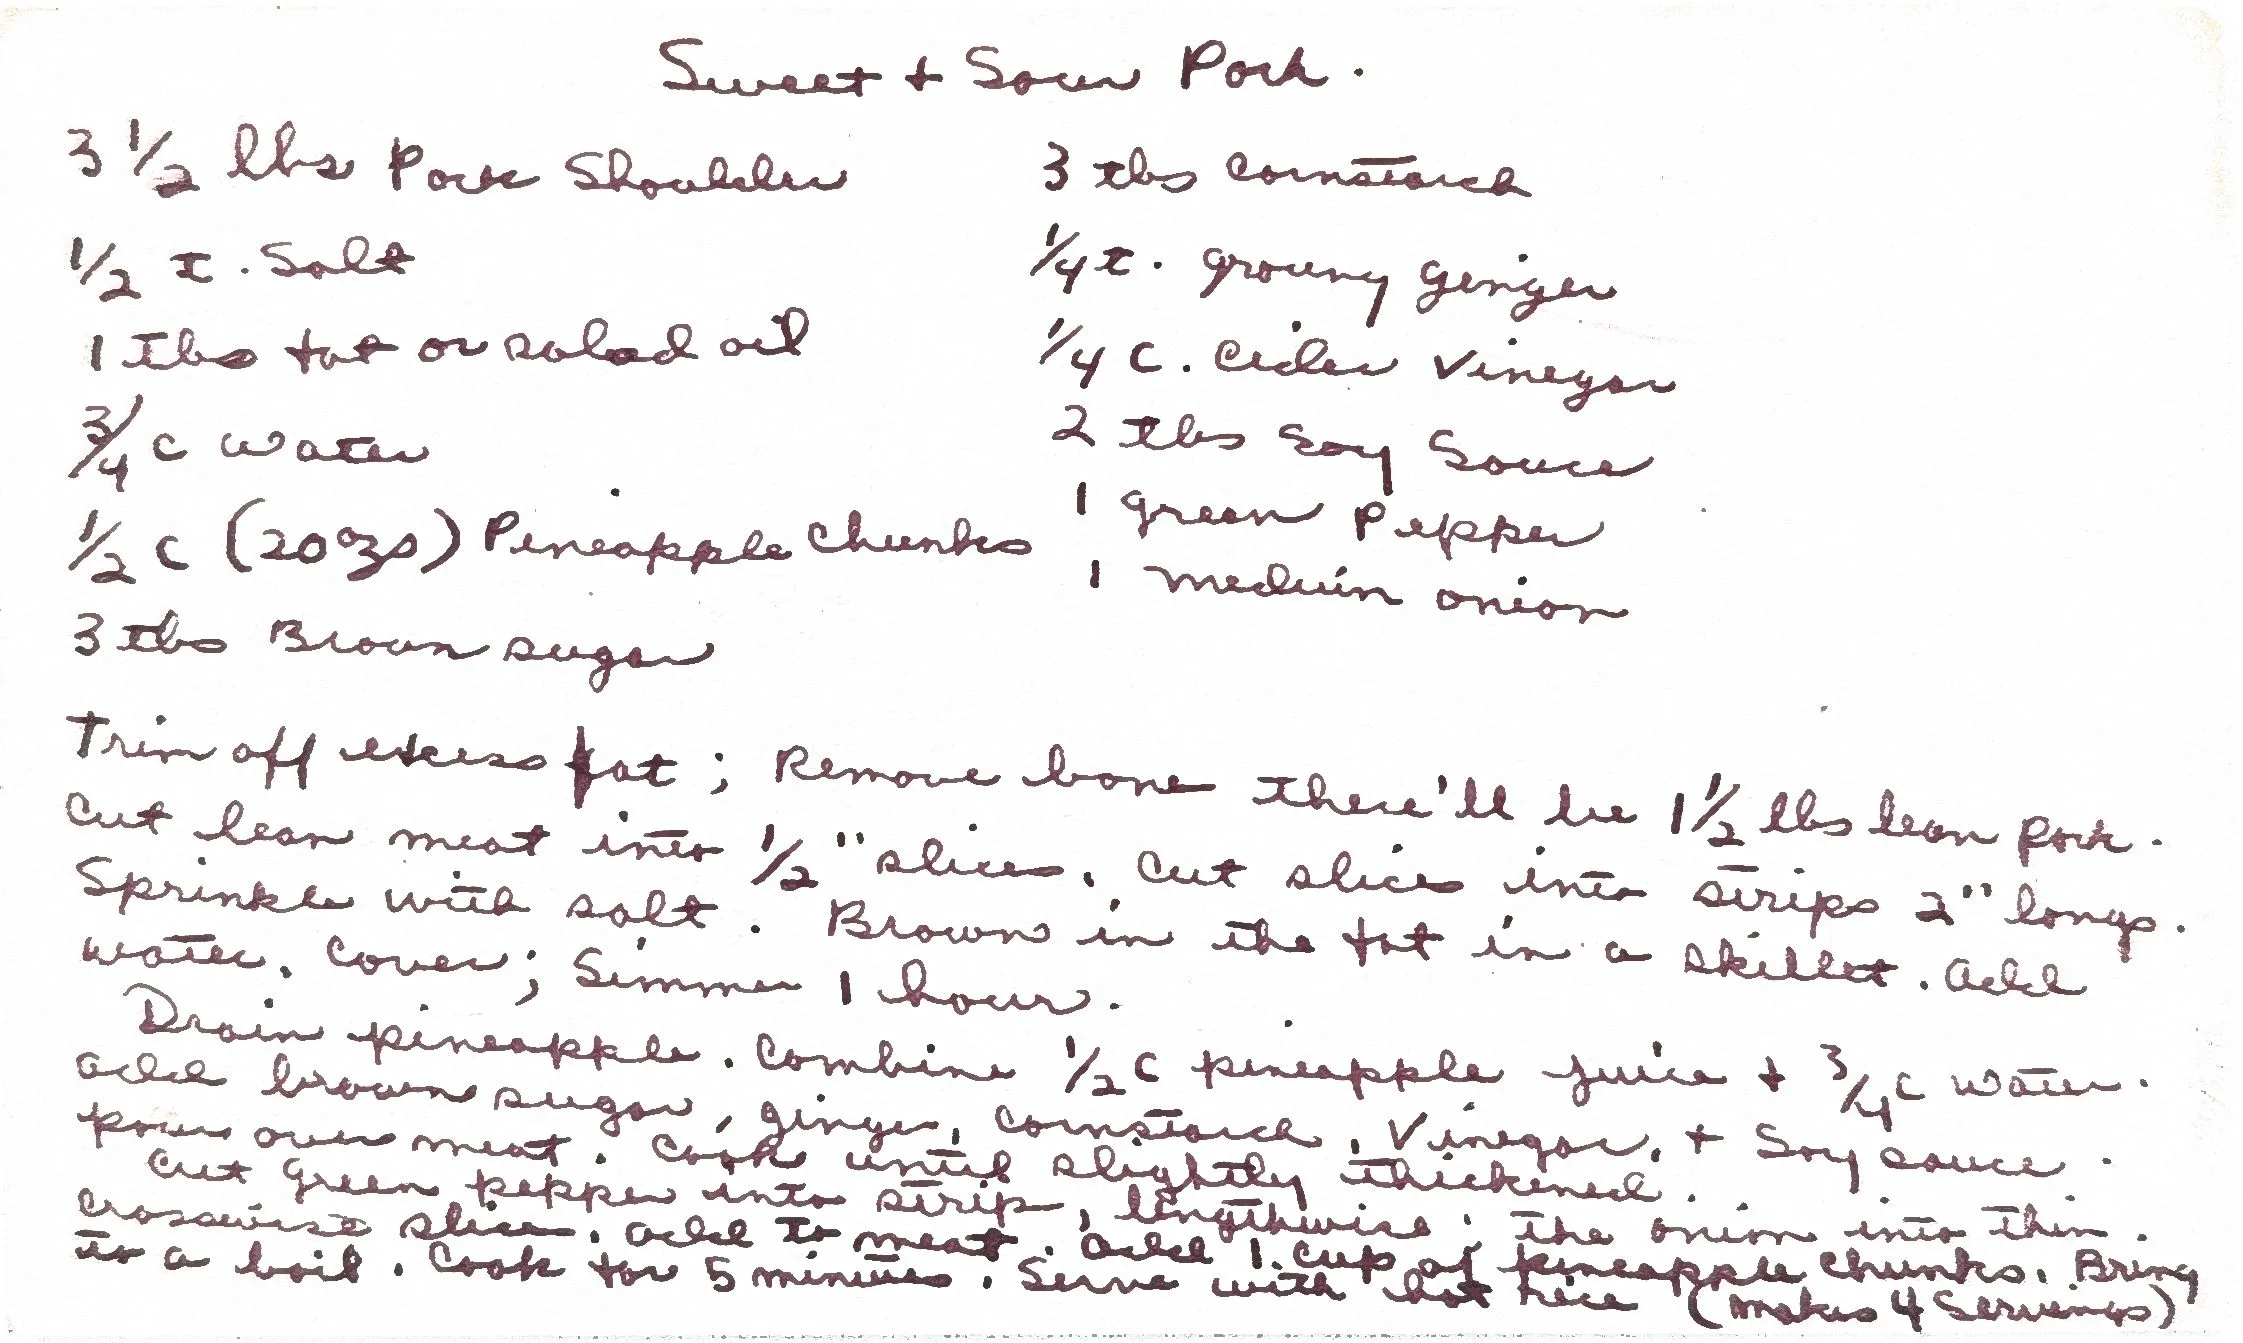 Sweet + Sour Pork.
3 1/2 lbs Pork Shoulder
1/2 t. Salt
1 Tbs fat or salad oil
3/4 c water
1/2 c (20 ozs) Pineapple Chunks
3 tbs Brown sugar
3 tbs cornstarch
1/4 t. groung ginger
1/4 c. cider vinegar
2 tbs soy souce
1 green pepper
1 meduin onion
Trim off excess fat; Remove bone there'll be 1 1/2 lbs lean pork.
Cut lean meat into 1/2" slices. Cut slices into strips 2" longs.
Sprinkle with salt. Brown in the fat in a skillet. Add
water. Cover; Simmer 1 hour.
Drain pineapple. Combine 1/2 c pineapple juice + 3/4 c water.
add brown sugar, ginger, cornstarch, vinegar, + Soy sauce.
pour over meat. Cook until slightly thickened.
Cut green pepper into strip, lengthwise; the onion into thin.
crosswise slices. add to meat. Add 1 cup of pineapple chunks. Bring
to a boil. Cook for 5 minutes. Serve with hot rice (Makes 4 Servings)